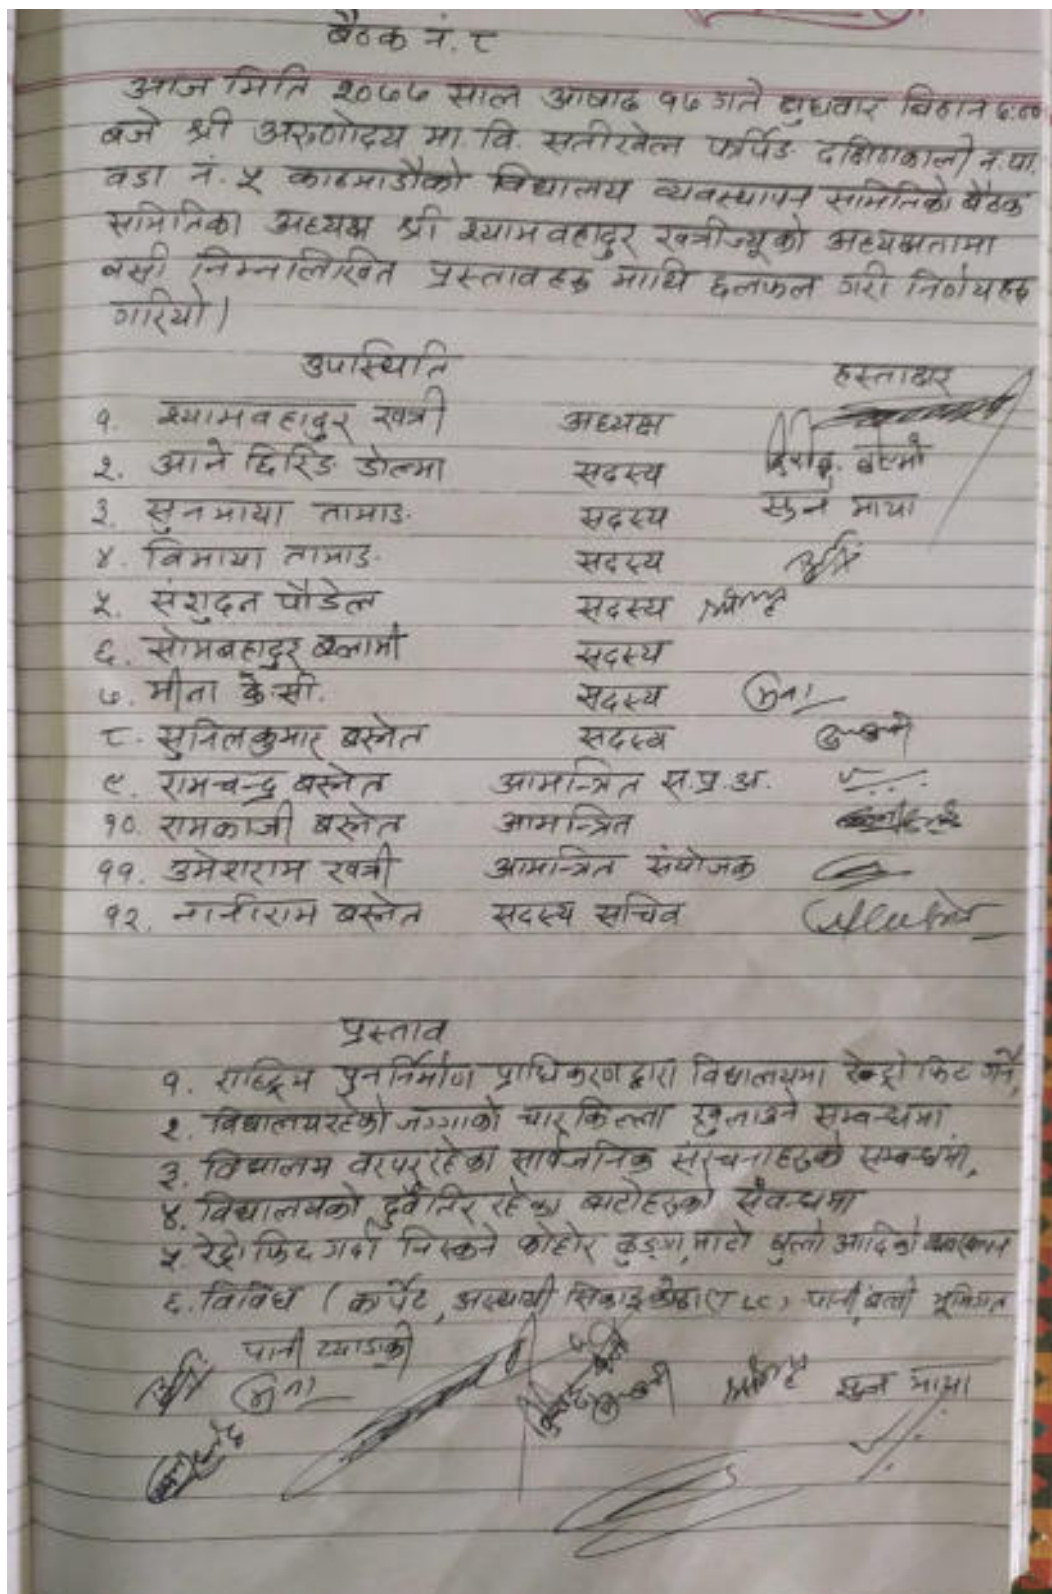 बैठक नं. ८
आज मिति २०७७ साल आषाढ १७ गते बुधवार विहान ७:००
बजे श्री अरुणोदय मा. वि. सतीखेल फर्पिङ दक्षिणकाली न.पा.
वडा नं. ५ काठमाडौंको विद्यालय व्यवस्थापन समितिको बैठक
समितिका अध्यक्ष श्री श्यामवहादुर खत्रीज्यूको अध्यक्षतामा
वसी निम्नलिखित प्रस्तावहरु माथि छलफल गरी निर्णयहरु
गरियो।
उपस्थिति हस्ताक्षर
१. श्यामवहादुर खत्री अध्यक्ष
२. आने छिरिङ डोल्मा सदस्य
३. सुनमाया तामाङ सदस्य सुन माया
४. विमाया तामाङ सदस्य
५. पौडेल सदस्य
६. सोमबहादुर बलामी सदस्य
७. मीना के.सी. सदस्य
८. सुनिलकुमार बस्नेत सदस्य
९. रामचन्द्र बस्नेत आमन्त्रित स.प्र.अ.
१०. रामकाजी बस्नेत आमन्त्रित
११. उमेशराम खत्री आमन्त्रित संयोजक
१२. नानीराम बस्नेत सदस्य सचिव
प्रस्ताव
१. राष्ट्रिय पुनर्निर्माण प्राधिकरणद्वारा विद्यालयमा रेट्रो फिट गर्ने,
२. विद्यालयरहेको जग्गाको चार किल्ला खुलाउने सम्बन्धमा
३. विद्यालय वरपर रहेका सार्वजनिक संरचनाहरुको सम्बन्धमा,
४. विद्यालयको दुवैतिर रहेका बाटोहरुको संवन्धमा
५. रेट्रो फिट गर्दा निस्कने फोहोर ढुङ्गा, माटो धुलो आदिको व्यवस्थापन
६. विविध (कार्पेट, अस्थायी सिकाइ केन्द्र (TLC) पानी, बत्ती भूमिगत
पानी ट्याङ्की
सुन माया